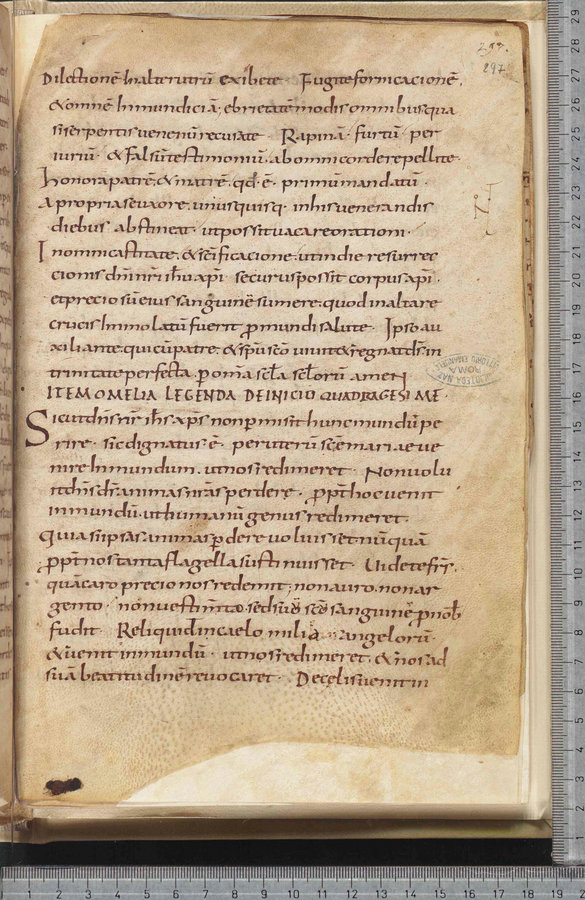 297
297
Dilectionē In alterutrū exibete · Fugite fornicacionē ·
& omnē Inmundiciā, ebrietatē modis omnibus qua
si serpentis venenū recusate · Rapinā · furtū · per
iuriū · & falsū testimoniū · ab omni corde repellite ·
Honora patrē, & matrē · qđ ē · primū mandatū ·
A propria se vxore · unusquisq · in his venerandis
diebus abstineat · ut possit vacare orationi ·
In omni castitate · & scīficacione · ut in die resurrec
cionis dn̄i nr̄i ih̄u xp̄i · securus possit corpus xp̄i ·
et precio sū eius sanguinē sumere · quod in altare
crucis Immolatū fuerit pro mundi salute · Ipso au
xiliante · qui cū patre · & sp̄u sc̄o uiuit & regnat dī in
trinitate perfecta · p om̄ia sc̄la sc̄lorū amen
ITEM OMELIA LEGENDA DE INICIO QUADRAGESIME ·
Sicut dn̄s nr̄ ih̄s xp̄s non permisit hunc mundū pe
rire · sic dignatus ē · per uterū scē mariae ue
nire In mundum · ut nos redimeret · Non uolu
it dn̄s dī animas nr̄as perdere · ppt̄ hoc uenit
in mundū · ut humanū genus redimeret ·
Quia si ipsas animas perdere uoluisset nūquā
ppt̄ nos tanta flagella sustinuisset · Uidete fr̄s ·
quā caro precio nos redemit; non auro · non ar
gento · non uestim̄to · sed suo sc̄o sanguine p nob
fudit · Reliquid In caelo milia angelorū ·
& uenit in mundū · ut nos redimeret · & nos ad
suā beatitudinē reuocaret · De celis uenit in